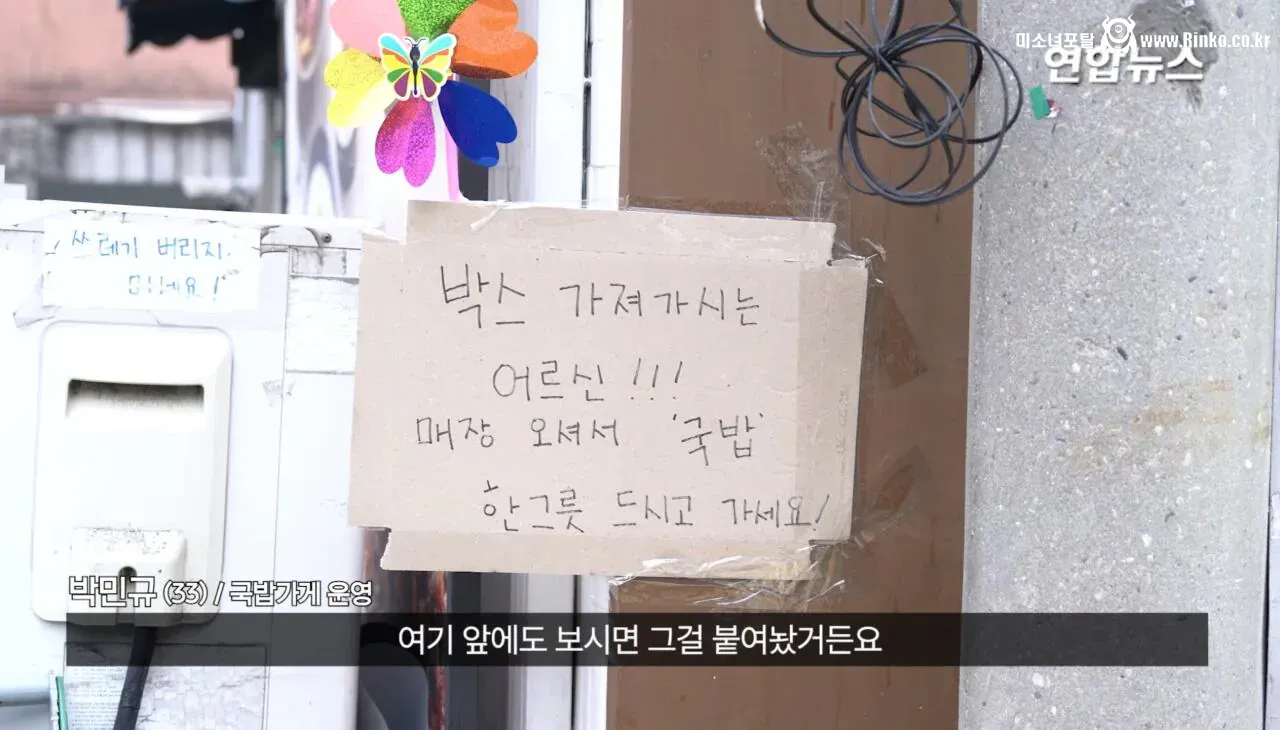 미소녀포탈 www.Rinko.co.kr
연합뉴스
쓰레기 버리지.
마세요!
박스 가져가시는
어르신!!!
매장 오셔서 '국밥'
한그릇 드시고 가세요!
박민규 (33) / 국밥가게 운영
여기 앞에도 보시면 그걸 붙여놨거든요